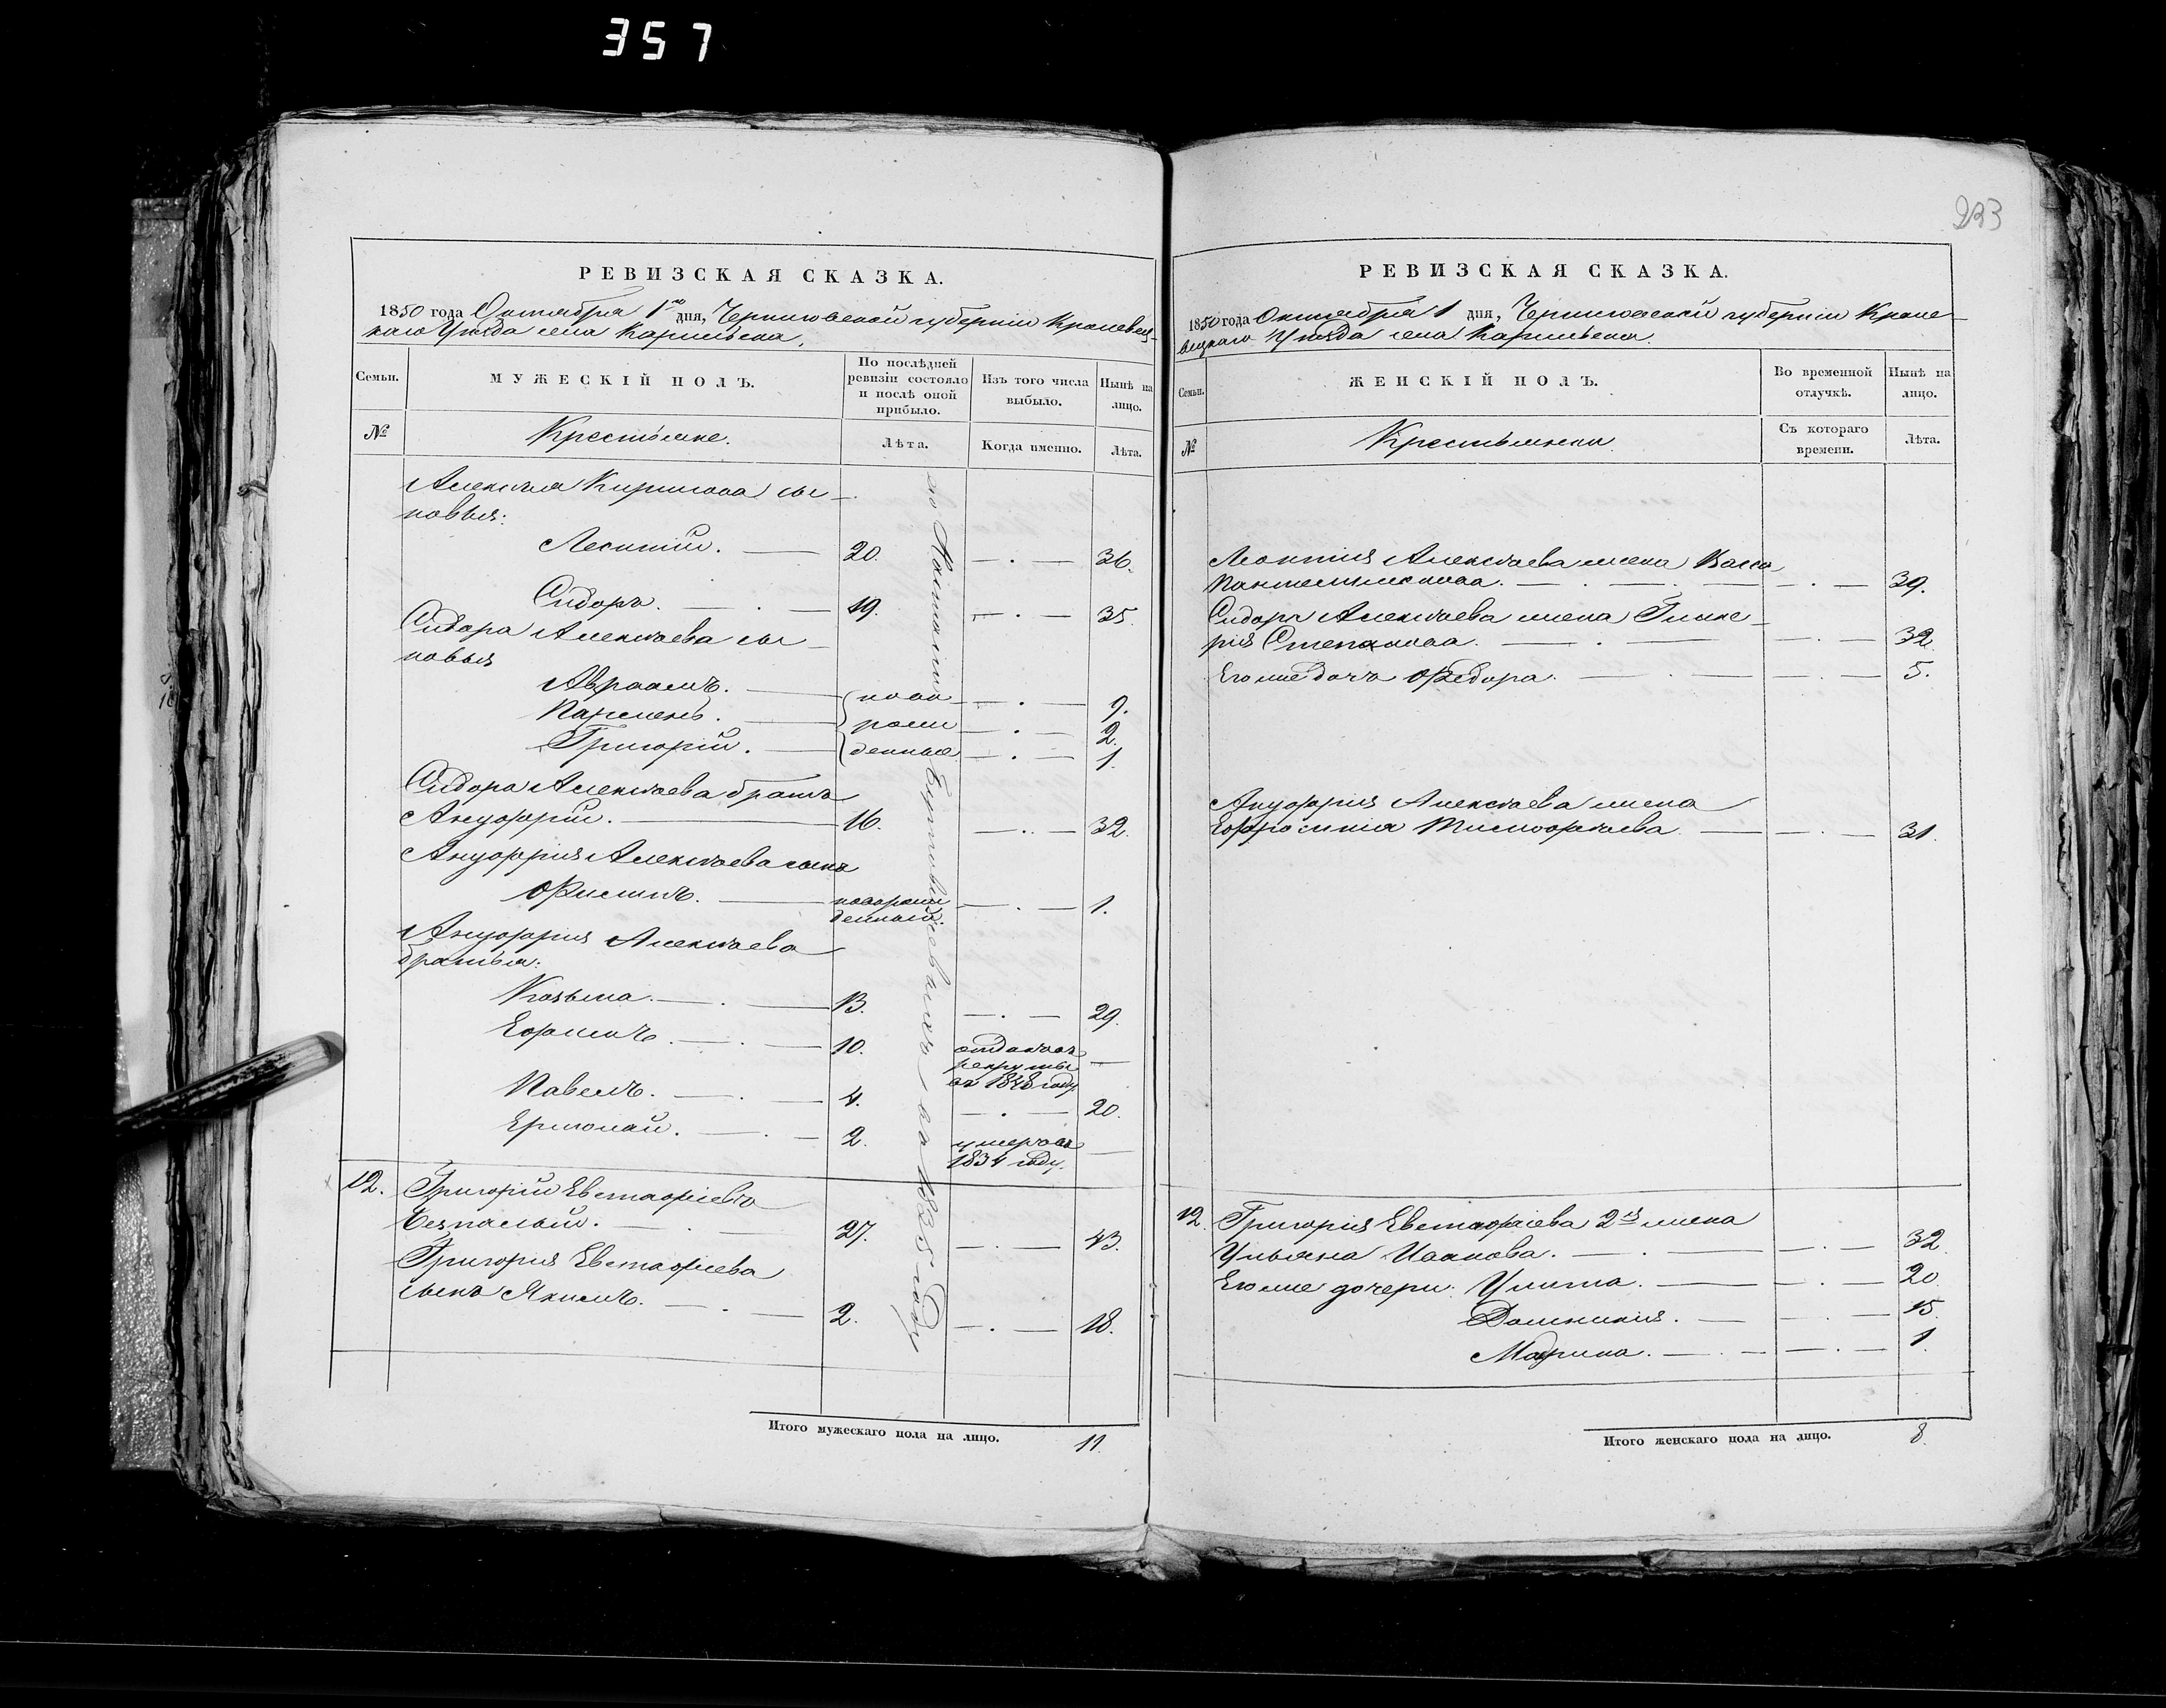 357
РЕВИЗСКАЯ СКАЗКА.
1850 года Октября 1го дня, Черниговской губернии Кролевец-
каго Уѣзда села Карыльска.
Семьи.
МУЖЕСКІЙ ПОЛЪ.
По послѣдней ревизіи состояло и послѣ оной прибыло.
Изъ того числа выбыло.
Нынѣ на лицо.
№
Крестьяне.
Лѣта.
Когда именно.
Лѣта.
Алексѣя Кирилова сы-
новья:
Леонтій. 20. 36.
Сидоръ. 19. 35.
Сидора Алексѣева сы-
новья
Авраамъ. ново 9.
Парменъ. рож 2.
Григорій. денные 1.
Сидора Алексѣева братъ
Ануфрій. 16. 32.
Ануфрія Алексѣева сынъ
Филипъ. новорож
денный. 1.
Ануфрія Алексѣева
братья:
Козьма. 13. 29.
Ефимъ. 10. отданъ въ
рекруты
въ 1848 году —
Павелъ. 4. 20.
Ермолай. 2. умеръ въ
1834 году. —
12. Григорій Евстафіевъ
Безпалый. 27. 43.
Григорія Евстафіева
сынъ Якимъ. 2. 18.
въ 1835 году
Итого мужескаго пола на лицо. 11.
233
РЕВИЗСКАЯ СКАЗКА.
1850 года Октября 1 дня, Черниговской губерніи Кроле-
вецкаго Уѣзда села Карыльска.
Семьи.
ЖЕНСКІЙ ПОЛЪ.
Во временной отлучкѣ.
Нынѣ на лицо.
№
Крестьянки
Съ котораго времени.
Лѣта.
Леонтія Алексѣева жена Васса
Пантелимонова. 39.
Сидора Алексѣева жена Глике-
рія Степанова. 32.
Его же дочь Федора. 5.
Ануфрія Алексѣева жена
Ефросинія Тимофѣева 31.
12. Григорія Евстафіева 2я жена
Ульяна Иванова. 32.
Его же дочери: Улита. 20.
Домникия. 15.
Марина. 1.
Итого женскаго пола на лицо. 8.